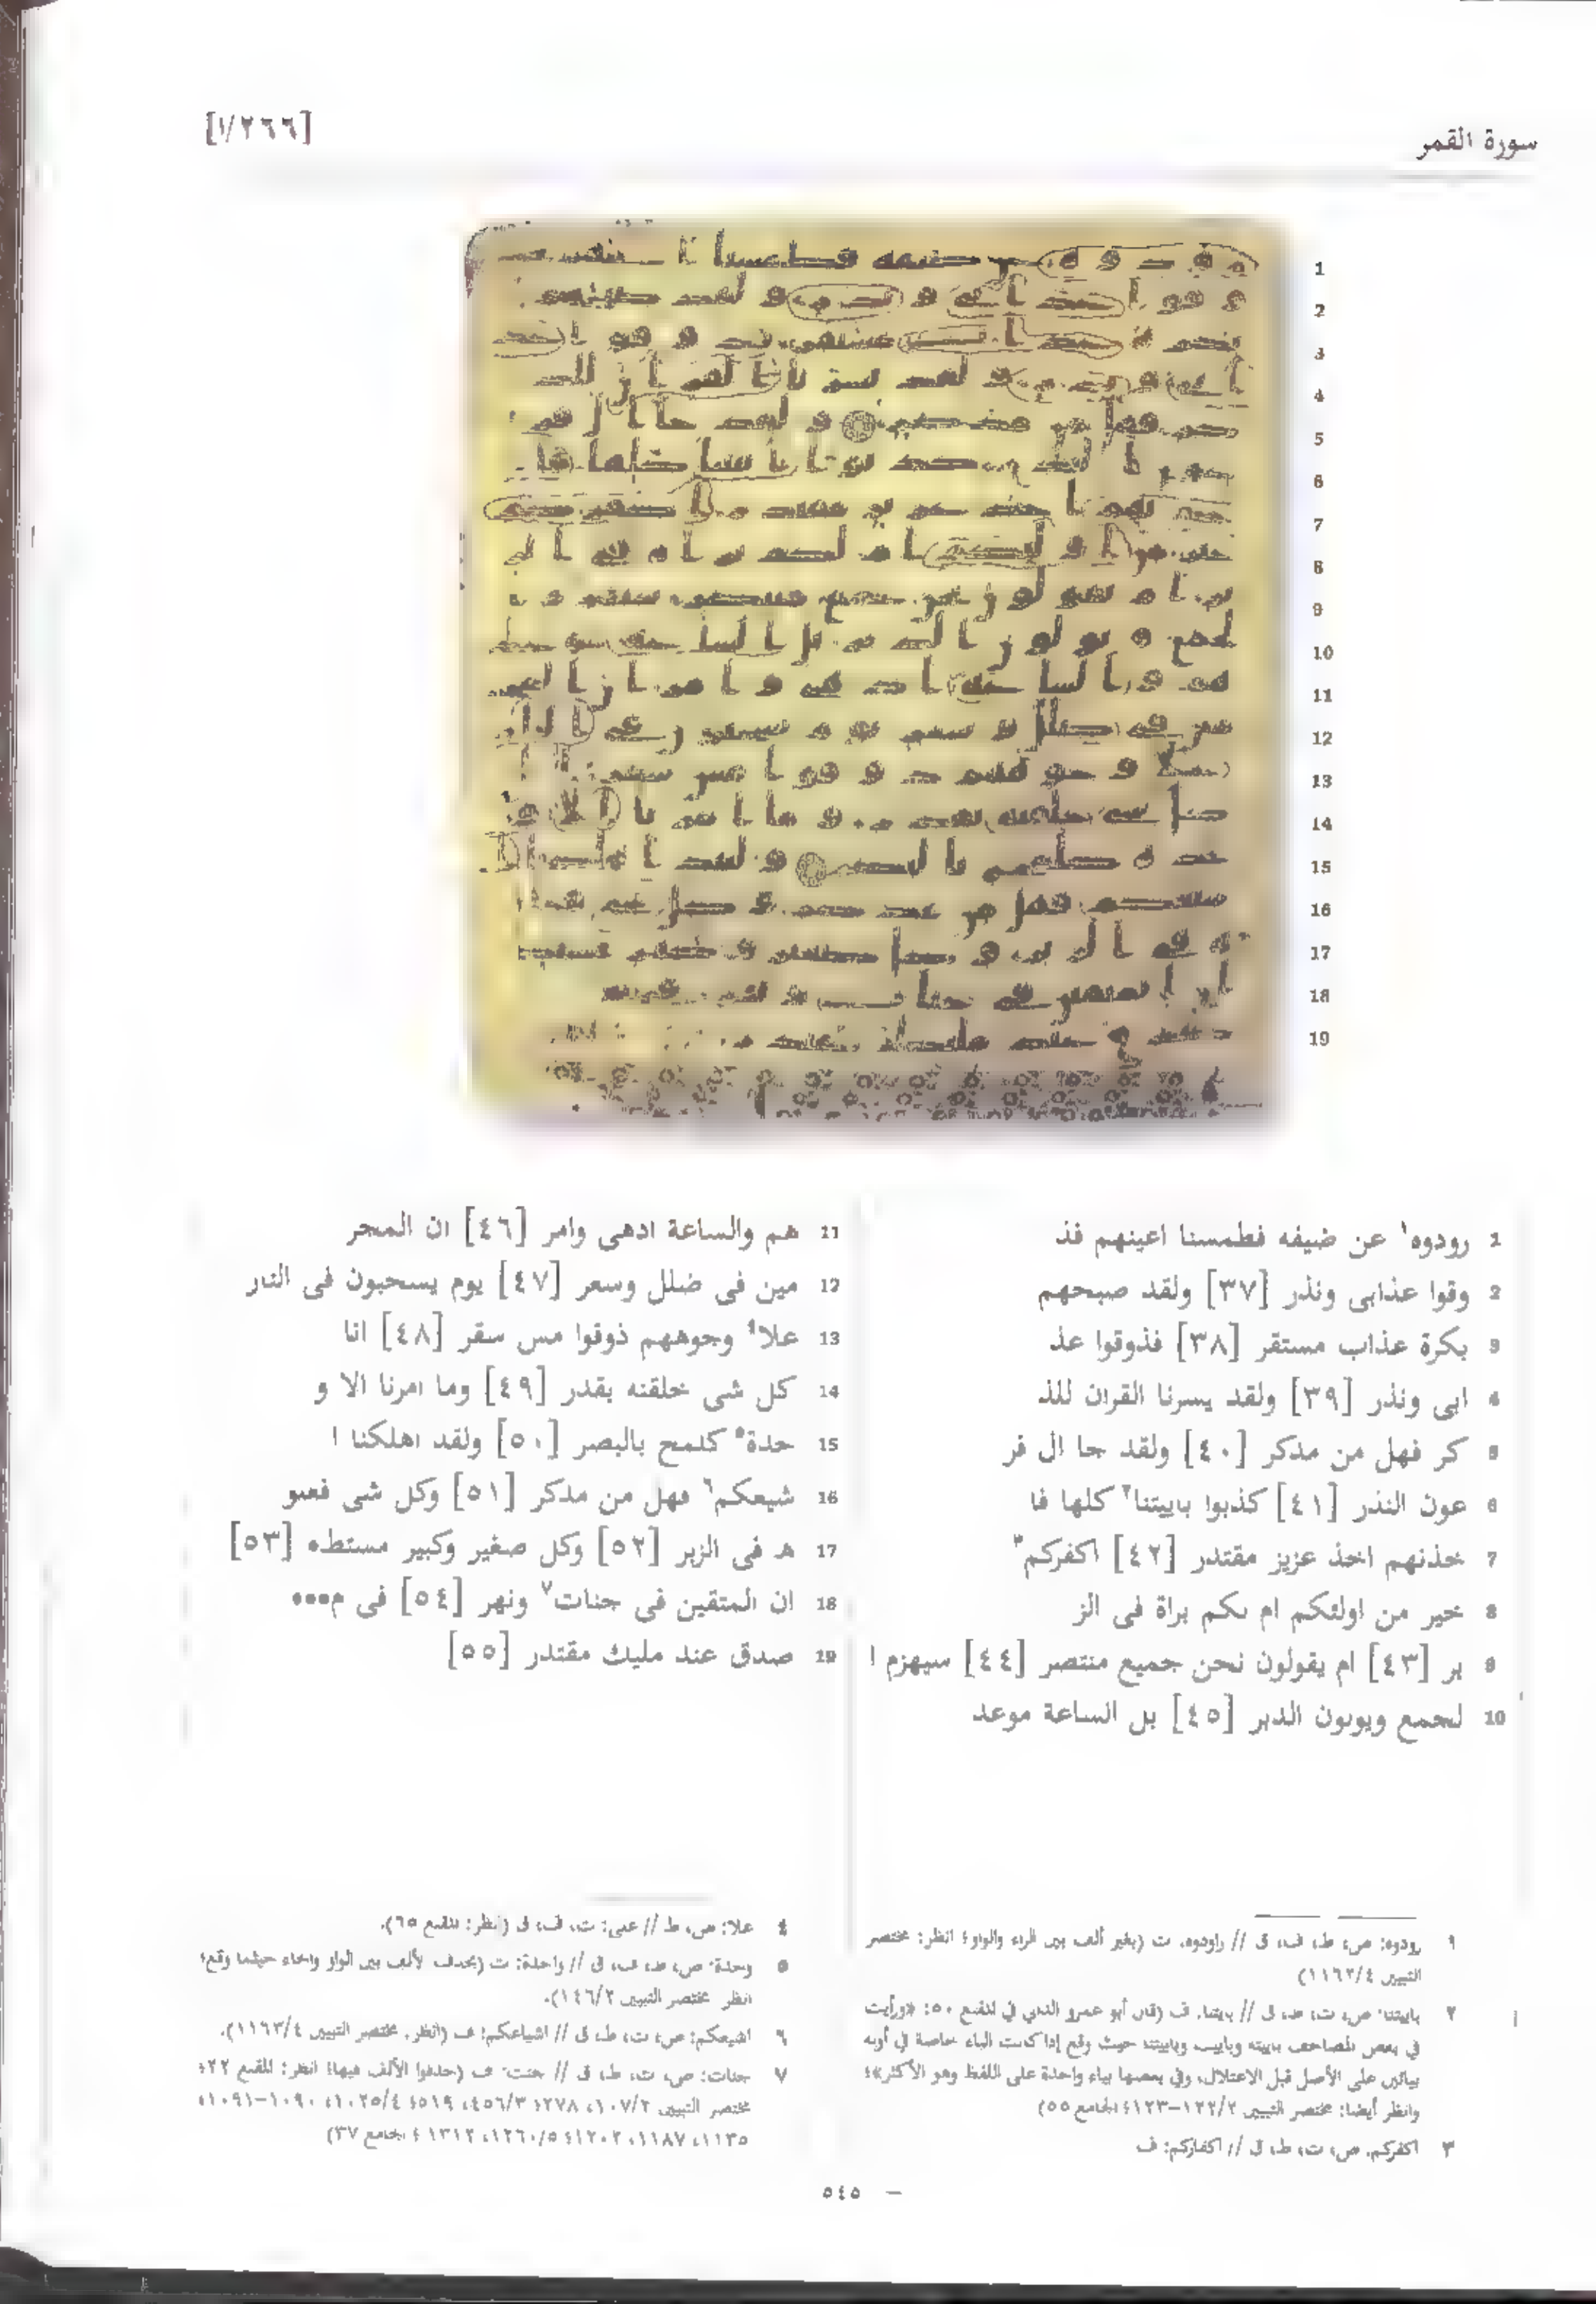 سورة القمر
[١/٢٦٦]
1 رودوه١ عن ضيفه فطمسنا اعينهم فذ
2 وقوا عذابى ونذر [٣٧] ولقد صبحهم
3 بكرة عذاب مستقر [٣٨] فذوقوا عذ
4 ابى ونذر [٣٩] ولقد يسرنا القران للذ
5 كر فهل من مدكر [٤٠] ولقد جا ال فر
6 عون النذر [٤١] كذبوا باييتنا٢ كلها فا
7 خذنهم اخذ عزيز مقتدر [٤٢] اكفركم٣
8 خير من اولئكم ام لكم براة فى الز
9 بر [٤٣] ام يقولون نحن جميع منتصر [٤٤] سيهزم ا
10 لجمع ويولون الدبر [٤٥] بل الساعة موعد
11 هم والساعة ادهى وامر [٤٦] ان المجر
12 مين فى ضلل وسعر [٤٧] يوم يسحبون فى النار
13 علا٤ وجوههم ذوقوا مس سقر [٤٨] انا
14 كل شى خلقنه بقدر [٤٩] وما امرنا الا و
15 حدة٥ كلمح بالبصر [٥٠] ولقد اهلكنا ا
16 شيعكم٦ فهل من مدكر [٥١] وكل شى فعلو
17 ه فى الزبر [٥٢] وكل صغير وكبير مستطر [٥٣]
18 ان المتقين فى جنات٧ ونهر [٥٤] فى م•••
19 صدق عند مليك مقتدر [٥٥]
١ رودوه: ص، ط، ف، ق // راودوه، ت (بغير ألف بين الراء والواو؛ انظر: مختصر
التبيين ١١٦٣/٤)
٢ باييتنا: ص، ت، ط، ق // بايتنا، ف (قال أبو عمرو الداني في المقنع ٥٠: «ورأيت
في بعض المصاحف باييته وباييت وباييتنا حيث وقع إذا كانت الباء خاصة في أوله
بيائين على الأصل قبل الاعتلال، وفي بعضها بياء واحدة على اللفظ وهو الأكثر»؛
وانظر أيضا: مختصر التبيين ١٢٢/٢-١٢٣؛ الجامع ٥٥)
٣ اكفركم: ص، ت، ط، ق // اكفاركم: ف
٤ علا: ص، ط // على: ت، ف، ق (انظر: المقنع ٦٥).
٥ وحدة: ص، ط، ف، ق // واحدة: ت (بحذف الألف بين الواو والحاء حيثما وقع؛
انظر مختصر التبيين ١٤٦/٢).
٦ اشيعكم: ص، ت، ط، ق // اشياعكم: ف (انظر: مختصر التبيين ١١٦٣/٤).
٧ جنات: ص، ت، ط، ق // جنت: ف (حذفوا الألف فيها؛ انظر: المقنع ٢٢؛
مختصر التبيين ١٠٧/٢، ٢٧٨؛ ٤٥٦/٣، ٥١٩؛ ١٠٢٥/٤، ١٠٩٠-١٠٩١،
١١٣٥، ١١٨٧، ١٢٠٢؛ ١٢٦٠/٥، ١٣١٢؛ الجامع ٣٧)
– ٥٤٥